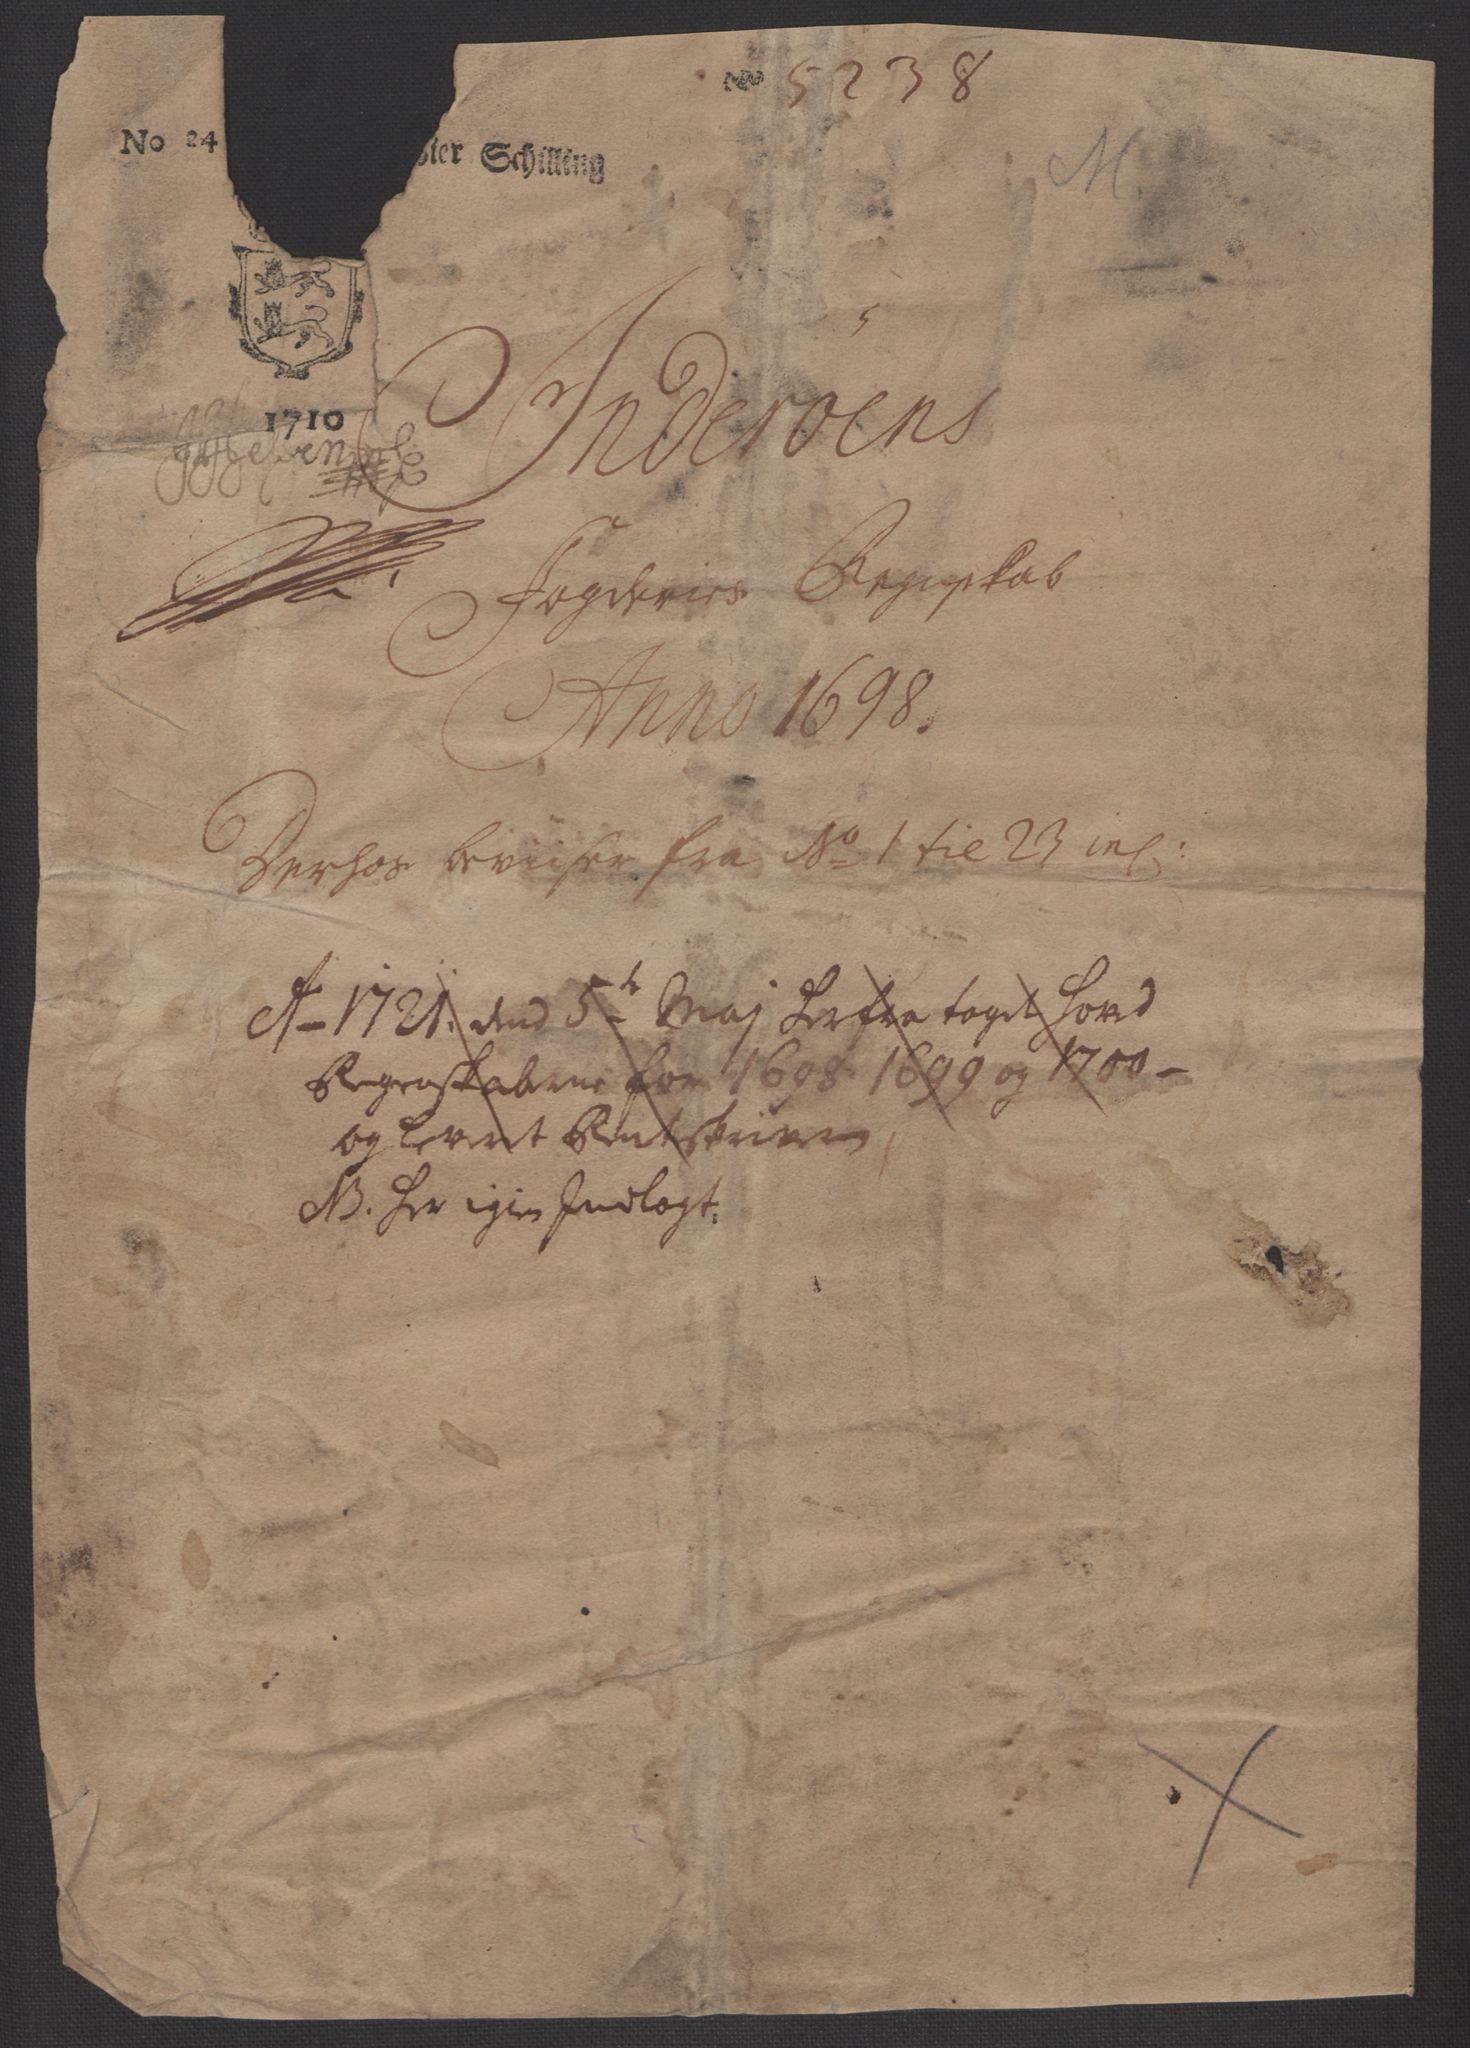 No 5238
No 24
ster Schilling
M.
1710
Inderöens
Fogderies Regnskab
Anno 1698.
Derhos beviiser fra No 1 til 23 incl:
Ao 1721. dend 5te Maj herfra taget hovd
Regenskaberne for 1698 1699 og 1700 -
og leveret Rentskriveren
NB. her igien Indlagt.